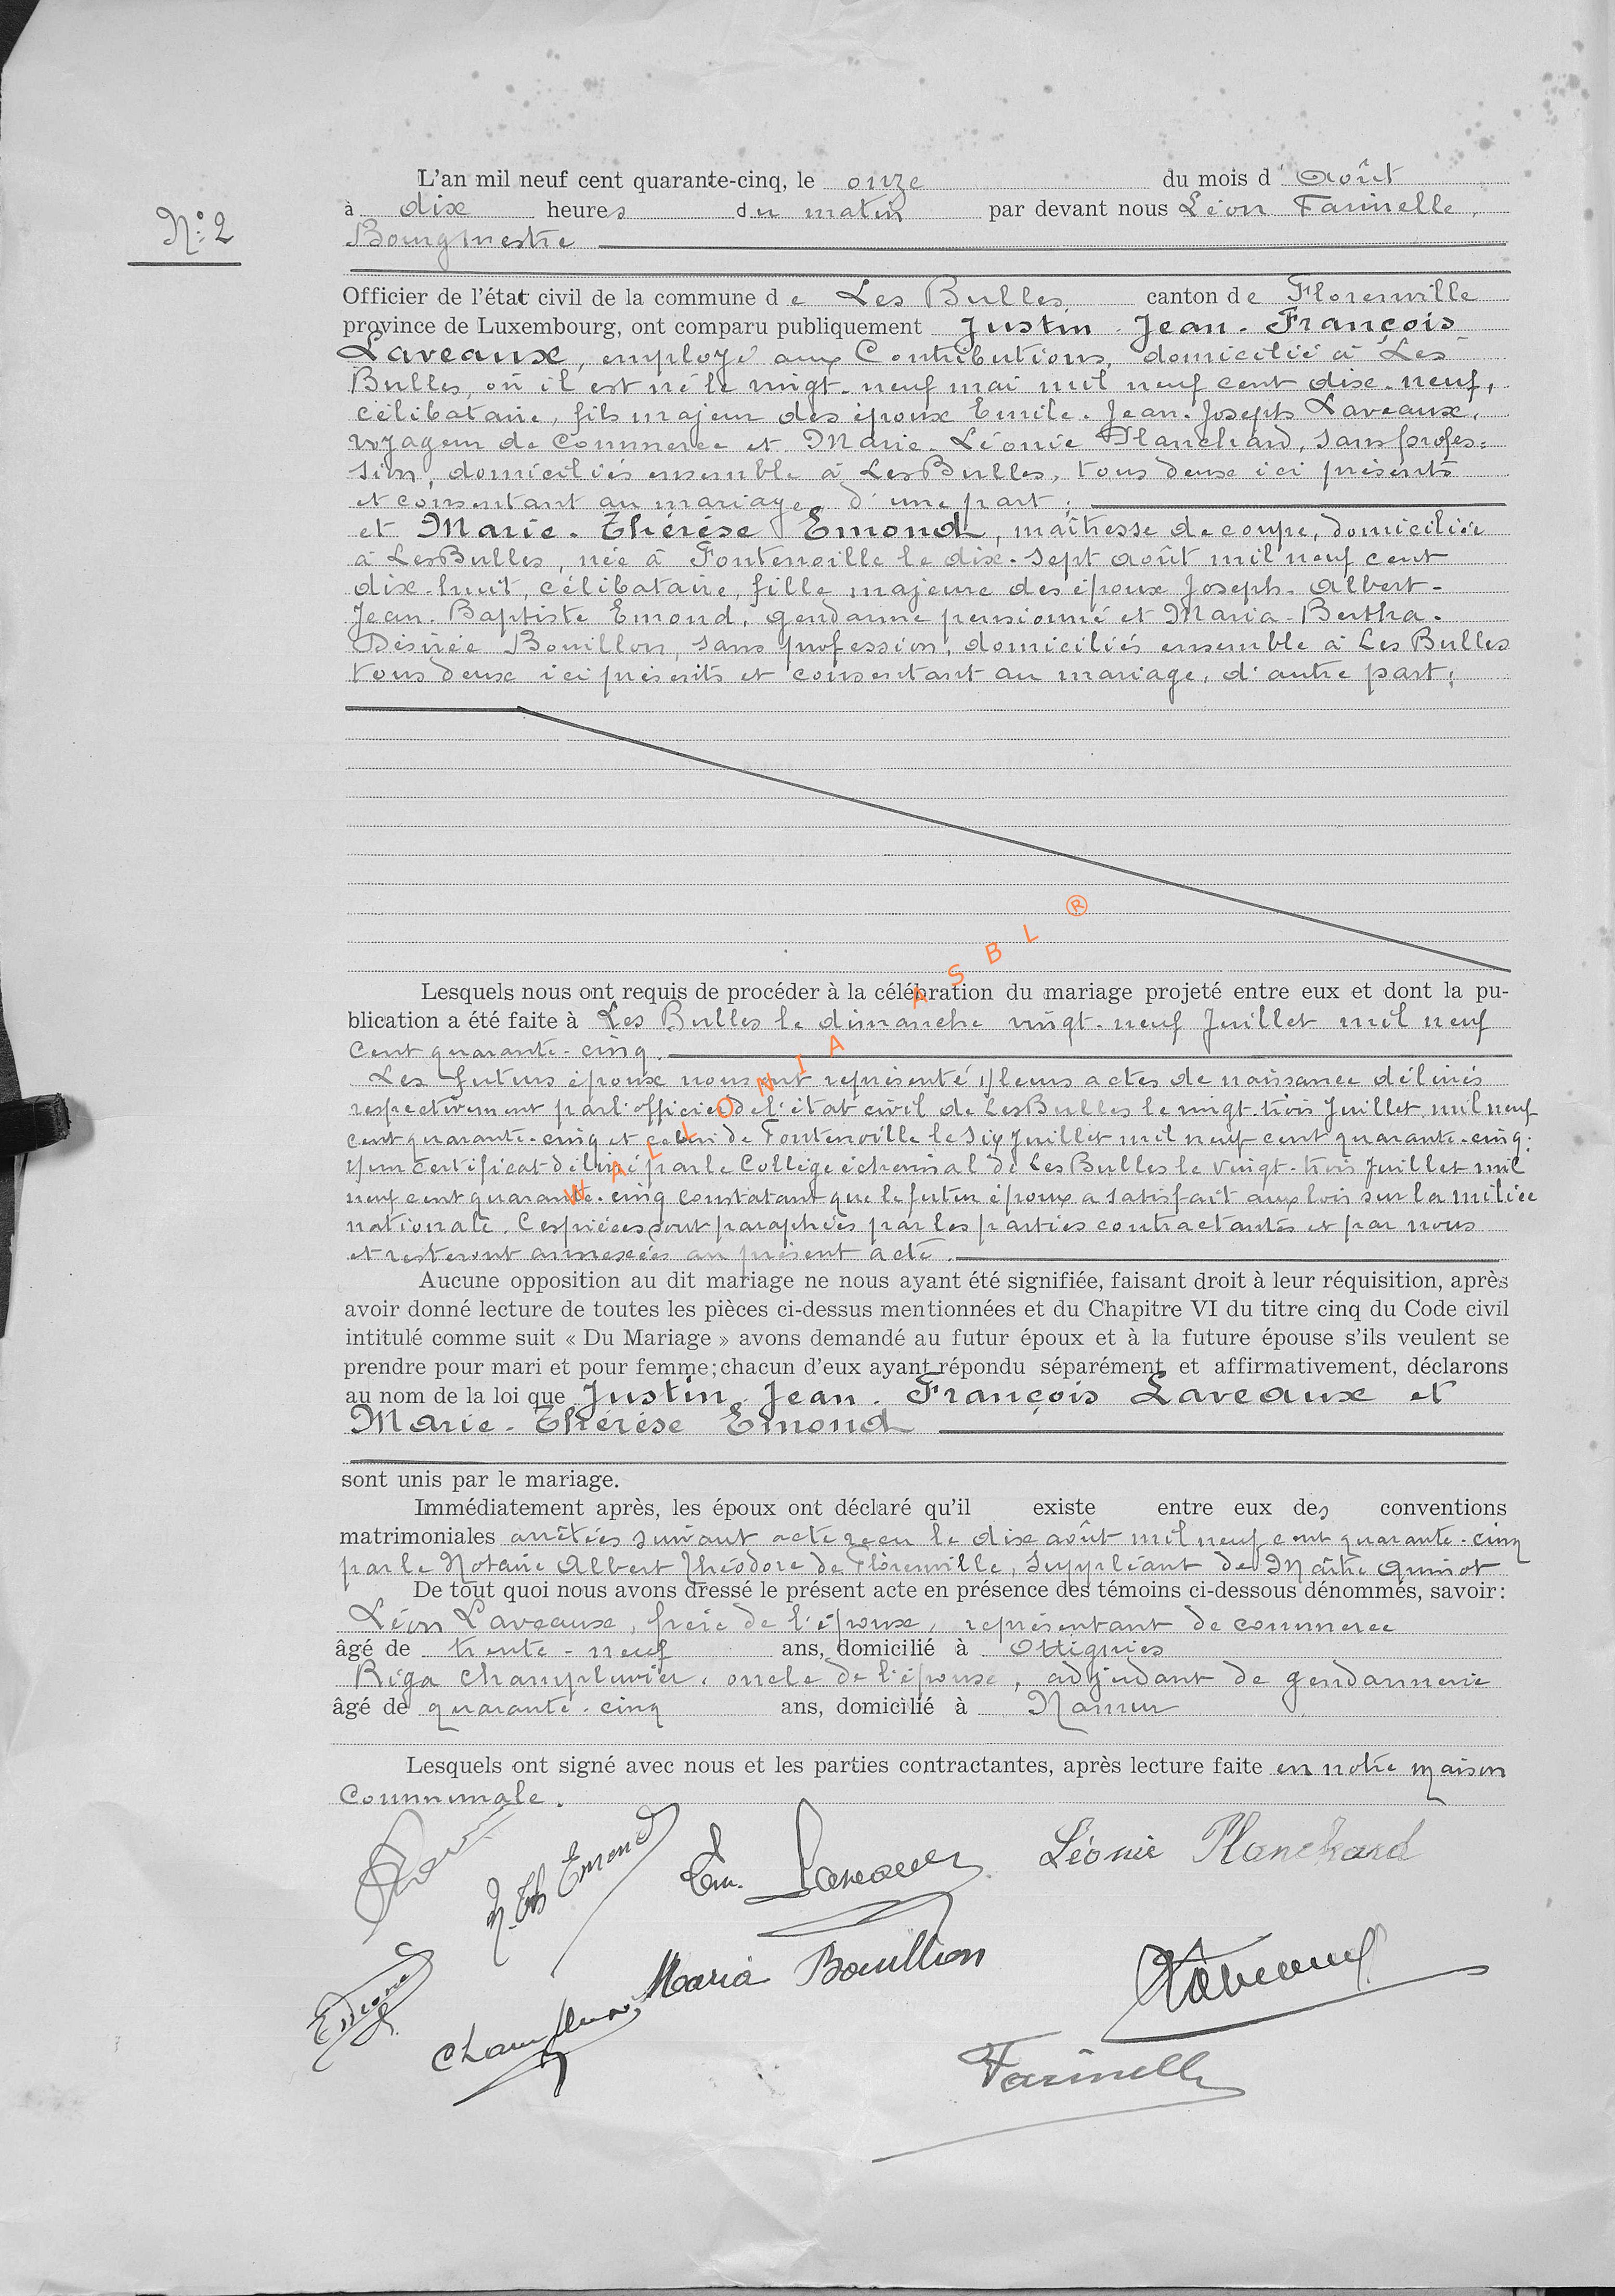 N° 2
L'an mil neuf cent quarante-cinq, le onze du mois d'Août
à dix heures du matin par devant nous Léon Farinelle,
Bourgmestre
Officier de l'état civil de la commune de Les Bulles canton de Florenville
province de Luxembourg, ont comparu publiquement Justin-Jean-François
Laveaux, employé aux Contributions, domicilié à Les
Bulles, où il est né le vingt-neuf mai mil neuf cent dix-neuf,
célibataire, fils majeur des époux Emile-Jean-Joseph Laveaux,
voyageur de commerce et Marie-Léonie Planchard, sans profes-
sion, domiciliés ensemble à Les Bulles, tous deux ici présents
et consentant au mariage, d'une part;
et Marie-Thérèse Emond, maîtresse de coupe, domiciliée
à Les Bulles, née à Fontenoille le dix-sept août mil neuf cent
dix-huit, célibataire, fille majeure des époux Joseph-Albert-
Jean-Baptiste Emond, gendarme pensionné et Maria-Bertha-
Désirée Bouillon, sans profession, domiciliés ensemble à Les Bulles
tous deux ici présents et consentant au mariage, d'autre part;
Lesquels nous ont requis de procéder à la célébration du mariage projeté entre eux et dont la pu-
blication a été faite à Les Bulles le dimanche vingt-neuf Juillet mil neuf
cent quarante-cinq.
Les futurs époux nous ont représenté 1/ leurs actes de naissance délivrés
respectivement par l'officier de l'état civil de Les Bulles le vingt-trois Juillet mil neuf
cent quarante-cinq et celui de Fontenoille le six Juillet mil neuf cent quarante-cinq:
2/ un certificat délivré par le Collège échevinal de Les Bulles le vingt-trois Juillet mil
neuf cent quarante-cinq constatant que le futur époux a satisfait aux lois sur la milice
nationale. Ces pièces sont paraphées par les parties contractantes et par nous
et resteront annexées au présent acte.
Aucune opposition au dit mariage ne nous ayant été signifiée, faisant droit à leur réquisition, après
avoir donné lecture de toutes les pièces ci-dessus mentionnées et du Chapitre VI du titre cinq du Code civil
intitulé comme suit « Du Mariage » avons demandé au futur époux et à la future épouse s'ils veulent se
prendre pour mari et pour femme; chacun d'eux ayant répondu séparément et affirmativement, déclarons
au nom de la loi que Justin-Jean-François Laveaux et
Marie-Thérèse Emond
sont unis par le mariage.
Immédiatement après, les époux ont déclaré qu'il existe entre eux des conventions
matrimoniales arrêtées suivant acte reçu le dix août mil neuf cent quarante-cinq
par le Notaire Albert Théodore de Florenville, suppléant de Maître Quinot
De tout quoi nous avons dressé le présent acte en présence des témoins ci-dessous dénommés, savoir:
Léon Laveaux, frère de l'époux, représentant de commerce
âgé de trente-neuf ans, domicilié à Ottignies
Riga Champluvier, oncle de l'épouse, adjudant de gendarmerie
âgé de quarante-cinq ans, domicilié à Namur
Lesquels ont signé avec nous et les parties contractantes, après lecture faite en notre maison
Communale.
M. Th Emond
Em. Laveaux
Léonie Planchard
Maria Bouillon
Laveaux
Emond
Champluvier
Farinelle
WALLONIA ASBL ®